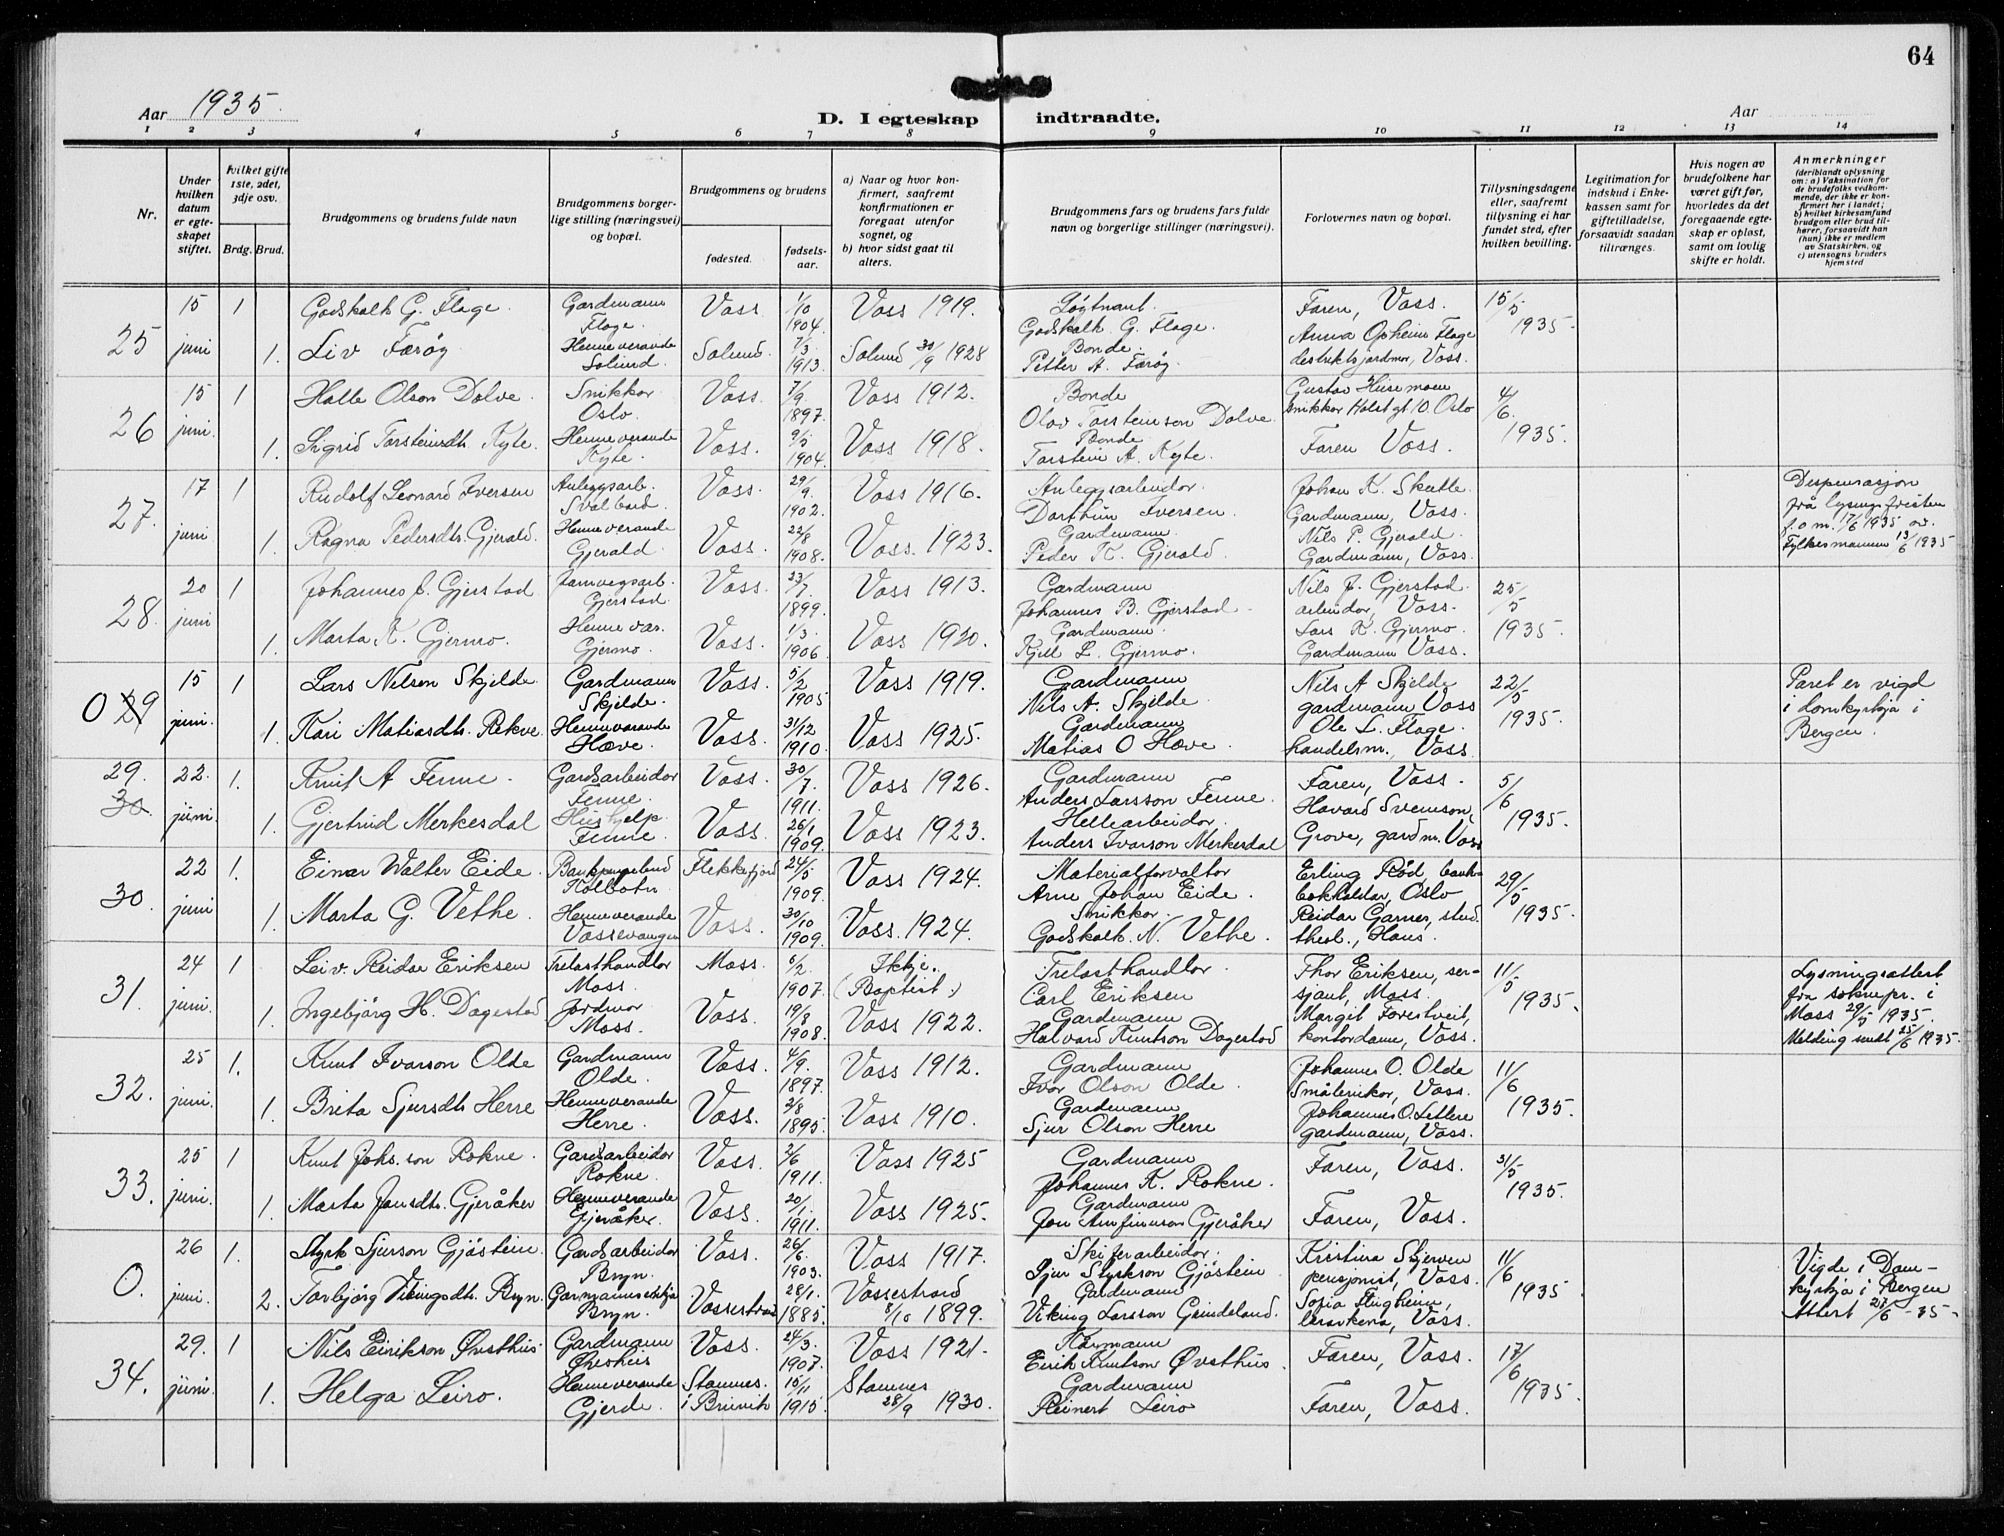 64
Aar 1935.
D. I egteskap indtraadte.
Aar
1 2 3 4 5 6 7 8 9 10 11 12 13 14
Nr.
Under hvilken datum er egteskapet stiftet.
hvilket gifte 1ste, 2det, 3dje osv.
Brdg. Brud.
Brudgommens og brudens fulde navn
Brudgommens borgerlige stilling (næringsvei) og bopæl.
Brudgommens og brudens
fødested.
fødselsaar.
a) Naar og hvor konfirmert, saafremt konfirmationen er foregaat utenfor sognet, og
b) hvor sidst gaat til alters.
Brudgommens fars og brudens fars fulde navn og borgerlige stillinger (næringsvei).
Forlovernes navn og bopæl.
Tillysningsdagene eller, saafremt tillysning ei har fundet sted, efter hvilken bevilling.
Legitimation for indskud i Enkekassen samt for giftetilladelse, forsaavidt saadan tiltrænges.
Hvis nogen av brudefolkene har været gift før, hvorledes da det foregaaende egteskap er opløst, samt om lovlig skifte er holdt.
Anmerkninger
(deriblandt oplysning om: a) Vaksination for de brudefolks vedkommende, der ikke er konfirmert her i landet;
b) hvilket kirkesamfund brudgom eller brud tilhører, forsaavidt han (hun) ikke er medlem av Statskirken, og
c) utensogns bruders hjemsted
25 15 juni 1 Godskalk G. Flage. Gardmann Flage. Voss. 1/10 1904. Voss 1919. Løgtnant. Godskalk G. Flage. Faren, Voss. 15/5 1935.
1. Liv Færøy Heimeverande Solund Solund. 7/3 1913. Solund 30/9 1928 Bonde. Petter A. Færøy Anna Opheim Flage destriktsjordmor, Voss.
26 15 juni. 1 Halle Olson Dolve. Snikkar Oslo. Voss. 7/9. 1897. Voss 1912. Bonde Olav Torsteinson Dolve Gustav Huse moen snikkar Holst gt 10. Oslo 4/6. 1935.
1. Sigrid Torsteinsdtr. Kyte. Heimeverande Kyte. Voss. 9/5 1904. Voss 1918. Bonde Torstein A. Kyte. Faren Voss.
27. 17 juni 1 Rudolf Leonard Iversen Anleggsarb. Svalbard. Voss. 29/9. 1902. Voss 1916. Anleggsarbeidar. Dorthin Iversen. Johan K. Skutle. Gardmann, Voss. Dispensasjon frå lysingsfristen f.o.m. 17/6 1935 av. Fylkesmannen 13/6 1935
1. Ragna Pedersdtr. Gjerald. Heimeverande Gjerald Voss. 22/8 1908. Voss. 1923. Gardmann. Peder K. Gjerald. Nils P. Gjerald. Gardmann, Voss.
28. 20 juni 1 Johannes J. Gjerstad Jarnvegsarb. Gjerstad. Voss. 23/7 1899. Voss 1913. Gardmann Johannes B. Gjerstad. Nils J. Gjerstad. arbeidar, Voss. 25/5 1935.
1. Marta K. Gjermo. Heimevær. Gjermo. Voss. 1/3. 1906 Voss 1920. Gardmann. Kjell L. Gjermo. Lars K. Gjermo. Gardmann Voss.
0 29 15 juni. 1 Lars Nilsen Skjelde. Gardmann Skjelde. Voss. 5/2 1905 Voss 1919. Gardmann Nils A. Skjelde. Nils A Skjelde gardmann, Voss 22/5 1935. Paret er vigd i domkyrkja i Bergen.
1. Kari Matiasdtr. Rekve Heimeverande Hæve. Voss. 31/12 1910. Voss 1925. Gardmann Matias O Hæve. Ole L. Flage. handelsm., Voss.
29. 30 22. juni 1. Knut A Femne. Gardsarbeidar Femne. Voss. 30/7. 1911. Voss 1926. Gardmann Anders Larsson Femne. Faren, Voss. 5/6 1935.
1. Gjertrud Merkesdal Hushjelp Femne. Voss. 26/1 1909. Voss 1923. Hellearbeidar. Anders Ivarson Merkesdal Havard Sveinson, Grove, gardm. Voss
30. 22 juni 1. Einar Walter Eide. Kolbotn Flekkefjord 24/5 1909. Voss 1924. Materialforvaltar Arne Johan Eide. Erling Rød, bankbokhaldar, Oslo 29/5 1935.
1. Marta G. Vethe. Heimeverande Vossevangen Voss. 30/10 1909. Voss. 1924. Snikkar. Godskalk. N. Vethe. Reidar Garnes, stud. theol., Haus.
31. 24 juni. 1 Leiv. Reidar Eriksen Trelasthandlar Moss. Moss. 6/2. 1907. Ikkje. (Baptist.) Trelasthandlar. Carl Eriksen Thor Eriksen, sersjant, Moss. 11/5 1935. Lysningsattest fra sokнepr. i Moss 29/5 1935. Melding sendt 25/6 1935.
1. Ingebjörg H. Dagestad Jordmor Moss. Voss. 19/8 1908. Voss 1922. Gardmann Halvard Knutson Dagestad Margit Forestveit, kontordame, Voss.
32. 25 juni. 1. Knut Ivarson Olde Gardmann Olde. Voss. 4/9. 1897. Voss 1912. Gardmann Ivar Olson Olde. Johannes O. Olde Småleникar, Voss. 11/6 1935.
1. Brita Sjursdtr. Herre Heimeverande Herre. Voss. 2/8 1895. Voss 1910. Gardmann Sjur Olson Herre Johannes O. Lettere gardmann, Voss.
33. 25 juni. 1 Knut Johs. son Rokne. Gardsarbeidar Rokne. Voss. 2/6 1911. Voss 1925 Gardmann Johannes K. Rokne. Faren, Voss. 31/5 1935.
1. Marta Jonsdtr. Gjeråker Heimeverande Gjeråker. Voss. 20/1. 1911. Voss 1925. Gardmann Jon Arnfinnson Gjeråker Faren, Voss.
0. 26 juni. 1. Styrk Sjurson Gjøstein. Gardsarbeidar Bryn. Voss. 26/6. 1903. Voss 1917. Skiferarbeidar. Sjur Styrkson Gjøstein Kristina Skjerven pensjonist, Voss. 11/6 1935 Vigde i Domkyrkja i Bergen Attest 27/6 - 35 -
2. Torbjørg Vikingsdtr. Bryn. Garmannsenkja Bryn. Vossestrand 28/1. 1885. Vossestrand 8/10 1899. Gardmann Viking Larsson Grindeland. Sofia Flugheim, lærarkena, Voss.
34. 29. juni. 1 Nils Eirikson Øvsthus. Gardmann Øvsthus Voss. 24/3. 1907. Voss 1921. Kårmann Eirik Knutson Øvsthus. Faren, Voss. 17/6 1935.
1. Helga Leiro. Heimeverande Gjerde. Stamnes. i Bruvik 15/11 1915. Stamnes 28/9 1930. Gardmann Reinert Leiro Faren, Voss.